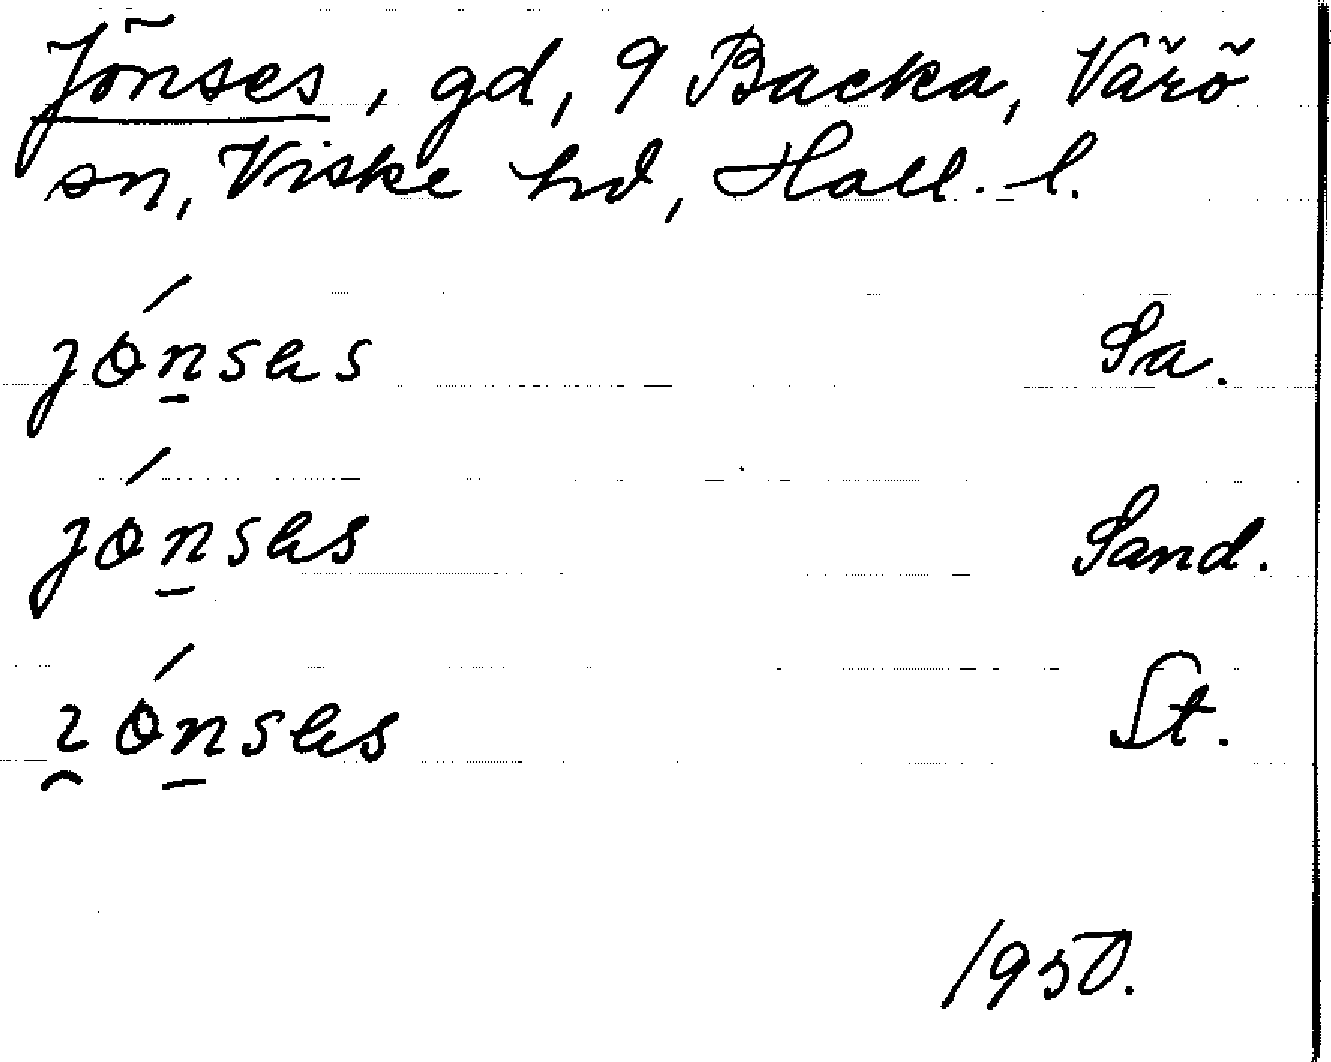 Jönses, gd, 9 Backa, Värö
sn, Viske hd, Hall. l.
jǿn̠sɐs Sa.
jǿn̠sɐs Sand.
ɿ̯ǿn̠sɐs St.
1950.